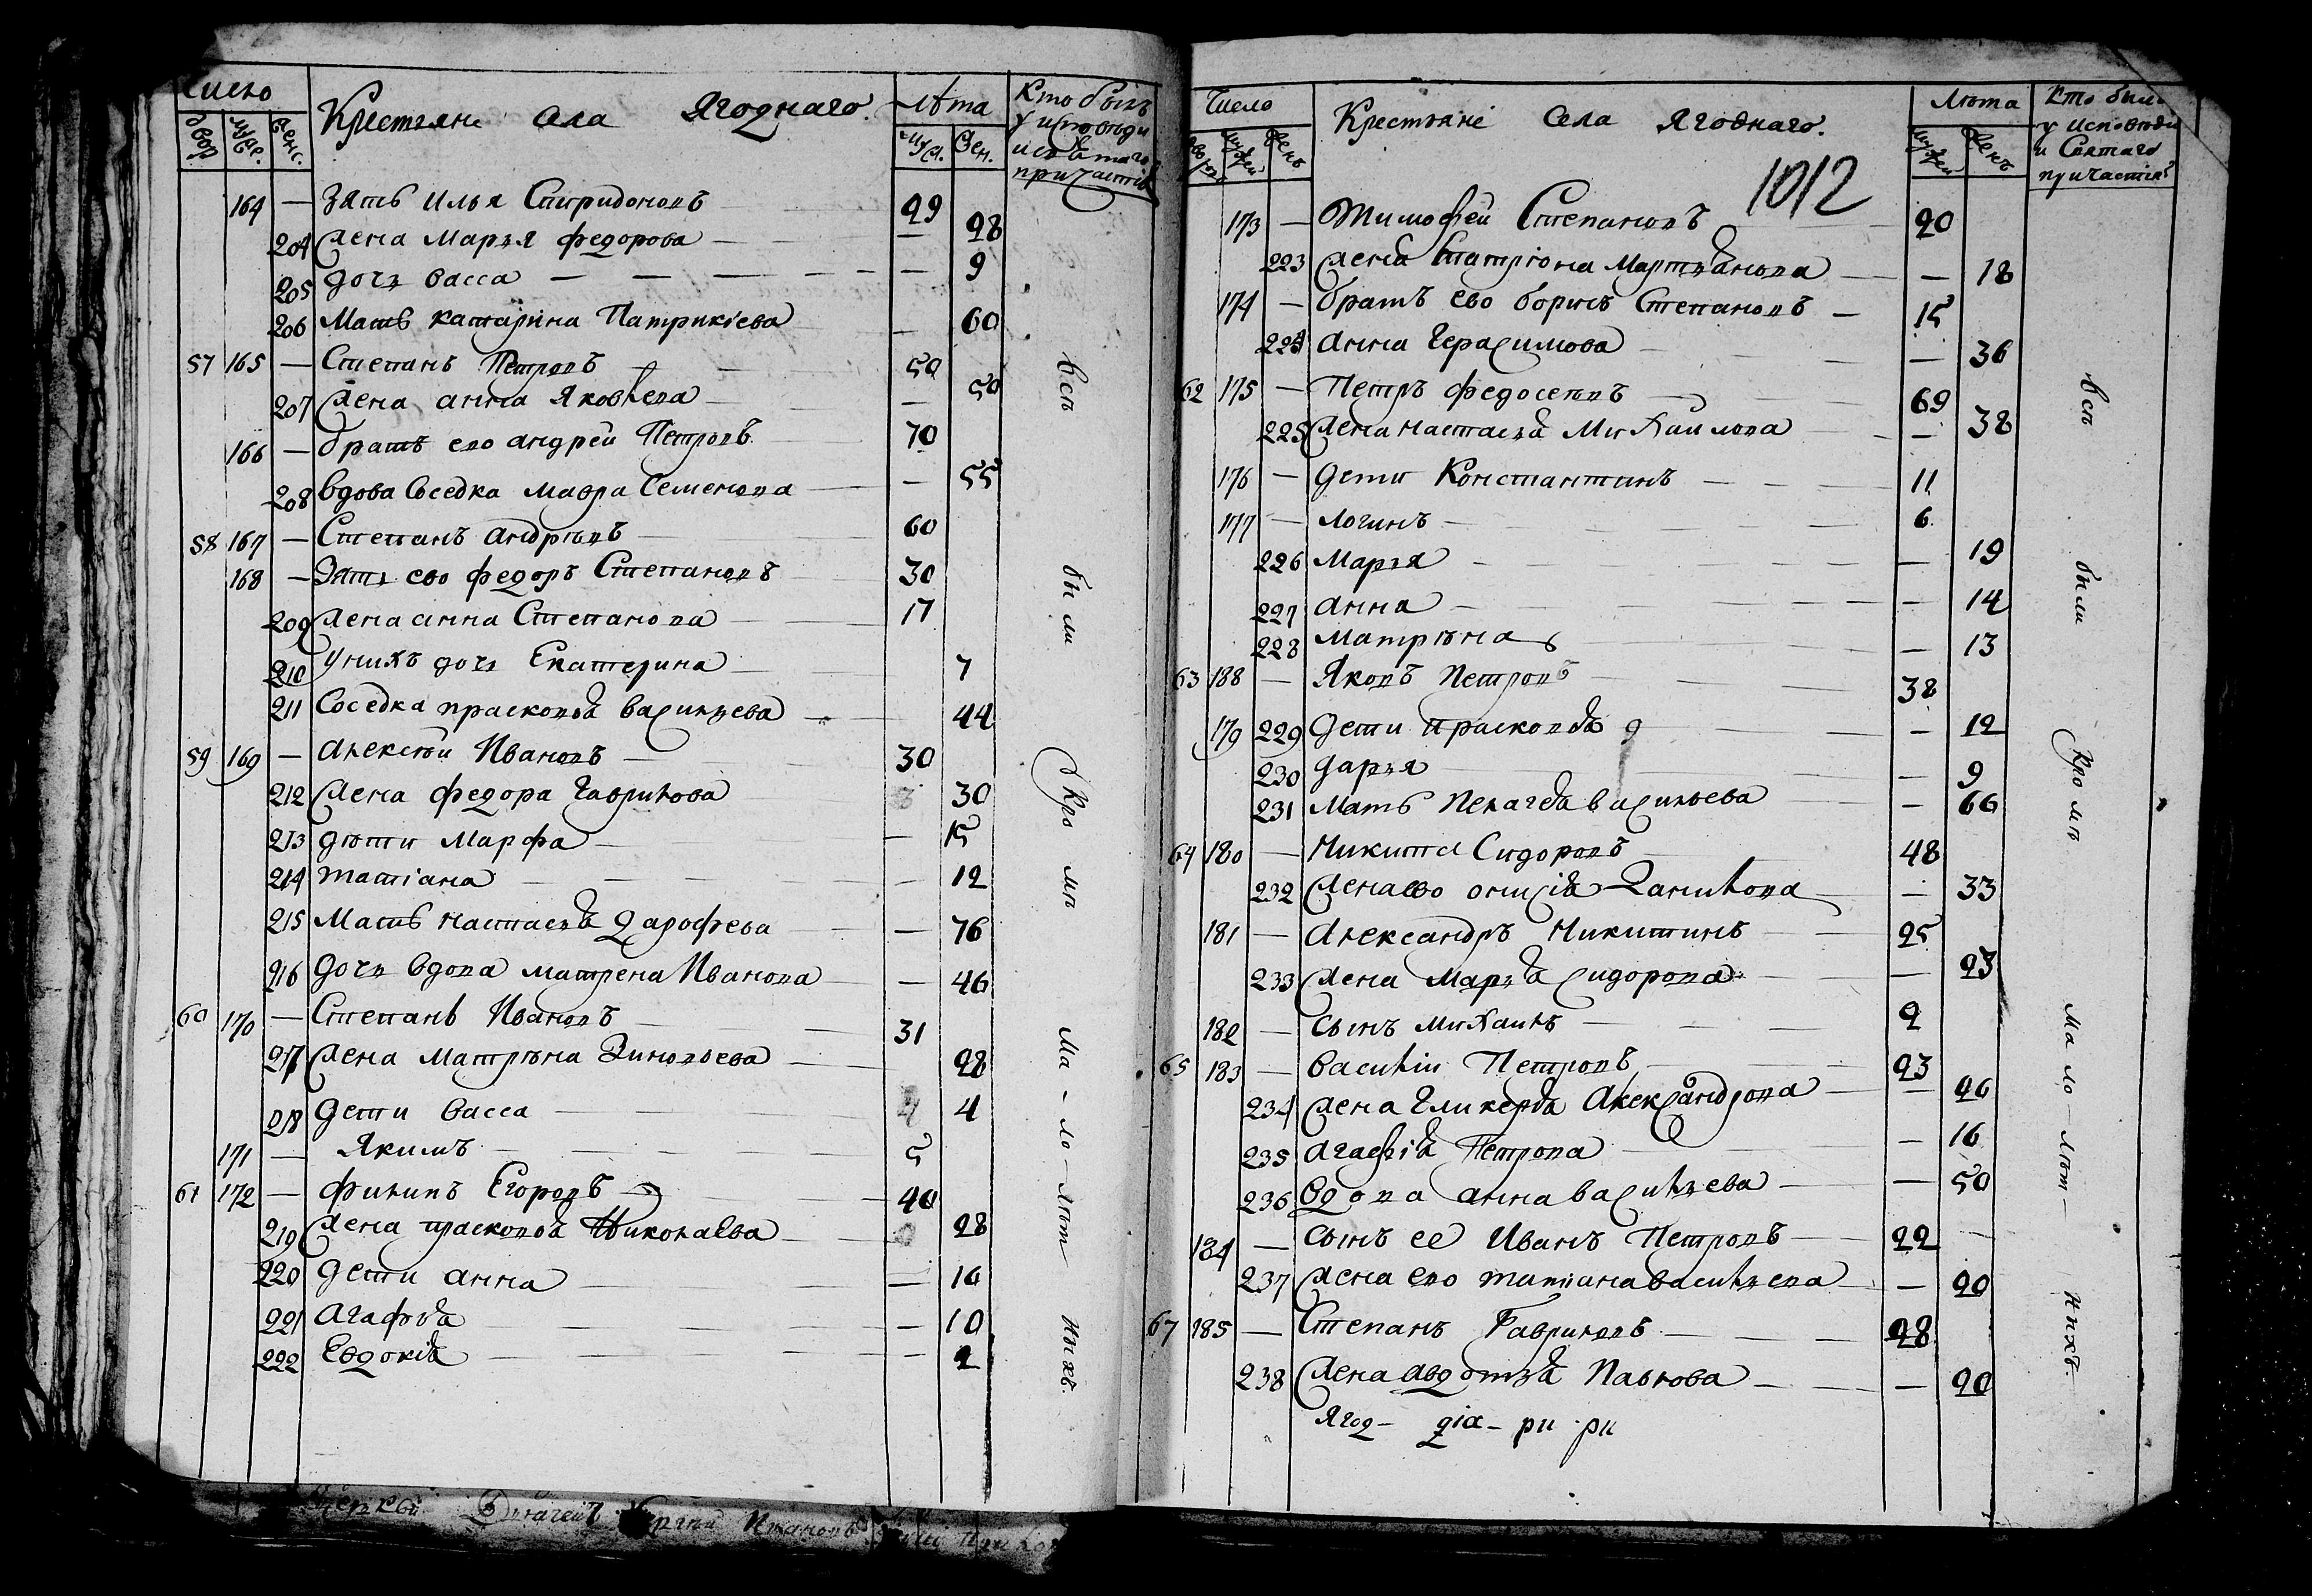 Число Крестьяне села Ягоднаго. Лѣта Кто былъ
двор. муже. женс. муж. жен. у исповѣди
и свѣтаго
причастія
164 — зять Илья Спиридоновъ 29
204 жена Марья федорова — 28
205 дочь васса — 9
206 Мать катарина Патрикіева — 60
57 165 — Степанъ Петровъ 50
207 жена анна Яковлева — 50
166 — братъ ево андрей Петровъ 70
208 вдова соседка мавра Семенова — 55
58 167 — Степанъ андрѣевъ 60
168 — Зять ево федоръ Степановъ 30
209 жена анна Степанова 17
210 у нихъ дочь Екатерина 7
211 Соседка прасковья васильева 44
59 169 — алексѣй Ивановъ 30
212 жена федора гаврилова 30
213 дѣти Марфа — 15
214 татіана — 12
215 Мать настасья дарофеева — 76
216 дочь вдова матрена Иванова — 46
60 170 — Степанъ Ивановъ 31
217 жена Матрѣна Зиновьева 28
218 дети васса 4
171 — Якимъ 5
61 172 — филипъ Егоровъ 40
219 жена прасковья Николаева 28
220 дети анна — 16
221 агафья — 10
222 Евдокія — 2
всѣ были кромѣ ма-ло-лѣт ныхъ.
Число Крестьяне Села Ягоднаго. Лѣта кто были
мужей женъ мужей женъ у исповѣди
и Святаго
причастія
1012
173 — Тимофей Степановъ 20
223 жена Матрюна Мартьянова — 18
174 — братъ ево борисъ Степановъ 15
224 анна герасимова — 36
62 175 — Петръ федосеевъ 69
225 жена настасья Михайлова — 38
176 — дети Константинъ 11
177 — логинъ 6
226 Марья — 19
227 анна — 14
228 матрѣна — 13
63 188 — Яковъ Петровъ 38
179 229 дети прасковья — 12
230 дарья — 9
231 мать пелагея васильева — 66
64 180 — Никита Сидоровъ 48
232 жена ево онисія данилова — 33
181 — александръ Никитинъ 25
233 жена Марья сидорова — 23
182 — сынъ михаилъ 2
65 183 — василій Петровъ 23
234 жена гликерья александрова — 26
235 агафія Петрова — 16
236 вдова анна васильева — 50
184 — сынъ ее Иванъ Петровъ 22
237 жена ево татиана васильева — 20
67 185 — Степанъ Гавриловъ 28
238 жена авдотья Павлова — 20
всѣ были кромѣ ма ло-лѣт- нихъ.
Ягод- діа- ри ри
церкви Ивановъ